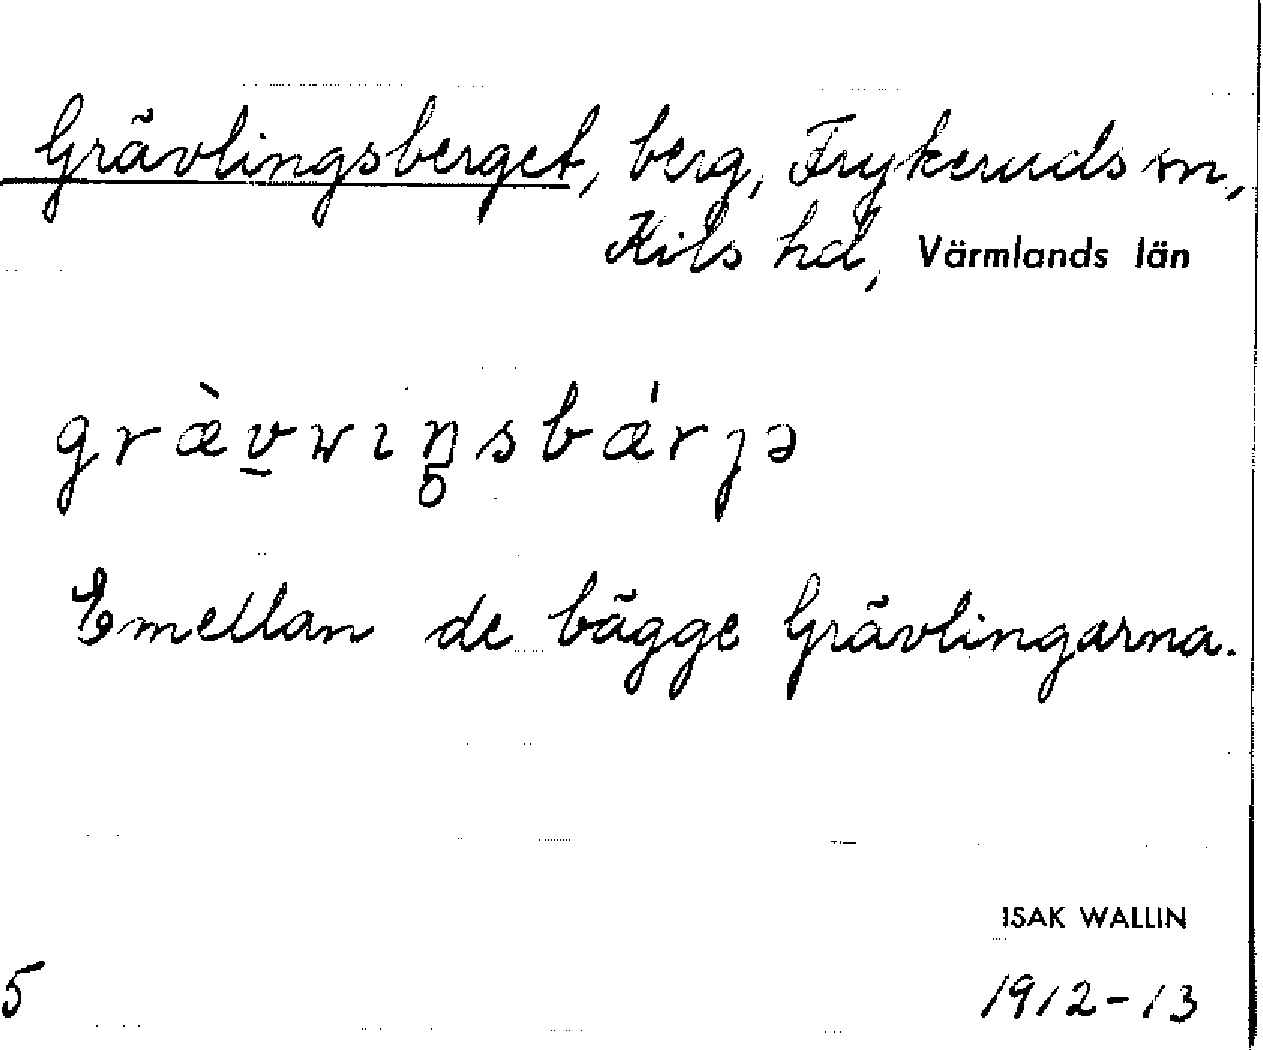 Grävlingsberget, berg, Frykeruds sn,
Kils hd, Värmlands län
græ̀v̲wıŋsbǽrȷə
Emellan de bägge Grävlingarna.
ISAK WALLIN
5 1912-13